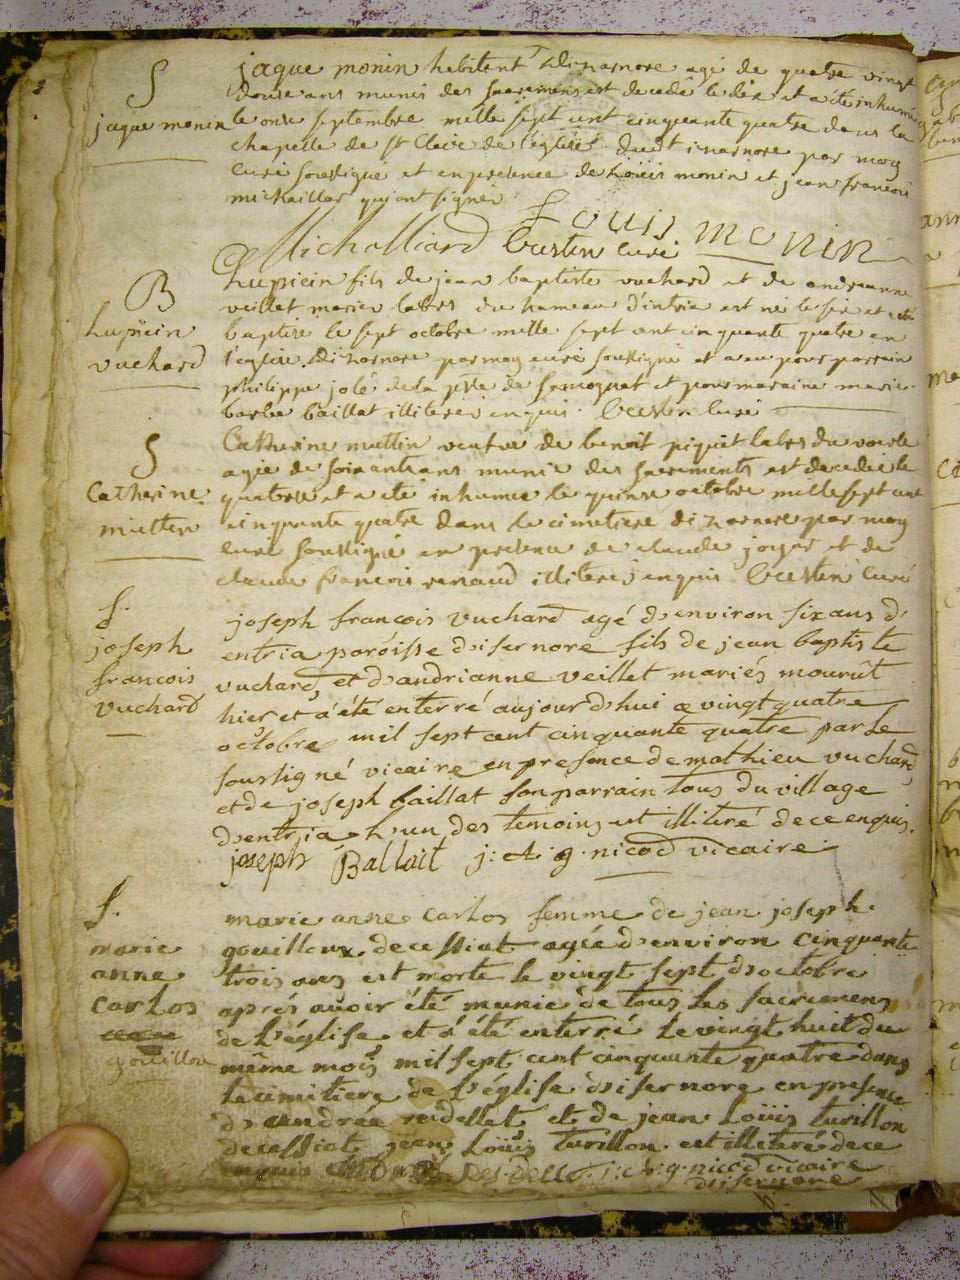 S
jaque monin
jaque monin habitent d'izarnore agé de quatre vingt
douse ans munis des sacremens est decedé le dix et a été inhumé
le onse septembre mille sept cent cinquante quatre dans la
chapelle de St Claire de l'église dudit izarnore par moy
curé soussigné et en presence de Loüis monin et jean francois
michaillard qui ont signés
Louis monin
Michalliard curé
B
Lupicin
vuchard
Lupicin fils de jean baptiste vuchard et de andreanne
veillet mariés labrs du hameau d'intria est né le six et a été
baptisé le sept octobre mille sept cent cinquante quatre en
l'eglise d'izarnore par moy curé soussigné et a eu pour parrain
philippe jolé de la psse de samognat et pour maraine marie
barbe baillat illiterés enquis. curé
S
Catherine
mutten
Catherine muttin veufve de benoit piquet labr du voerle
agée de soixante ans munie des sacrements est decedée le
quatorse et a été inhumée le quinse octobre mille sept cent
cinquante quatre dans le cimetiere d'izarnore par moy
curé soussigné en presence de claude joyar et de
claude francois renaud illiterés enquis. curé
S.
joseph
francois
vuchard
joseph francois vuchard agé d'environ six ans d'
entria paroisse d'isernore fils de jean baptiste
vuchard, et d'andrianne veillet mariés mourût
hier et a été enterré aujourd'hui ce vingt quatre
octobre mil sept cent cinquante quatre par le
soussigné vicaire en presence de mathieu vuchard
et de joseph baillat son parrain tous du village
d'entria. L'un des temoins est illiteré de ce enquis.
joseph Ballait j. A. g. nicod vicaire.
S.
marie
anne
carlos
gouilloux
marie anne carlos femme de jean joseph
gouilloux. de cessiat agée d'environ cinquante
trois ans est morte le vingt sept d'octobre
aprés avoir été munie de tous les sacremens
de l'église et a été enterré le vingt huit du
même mois mil sept cent cinquante quatre dans
le cimitiere de l'église d'isernore en presence
d'andrée reidellet et de jean Loüis turillon
de cessiat jean Loüis turillon est illiteré de ce
enquis j. A. g. nicod vicaire
d'isernore